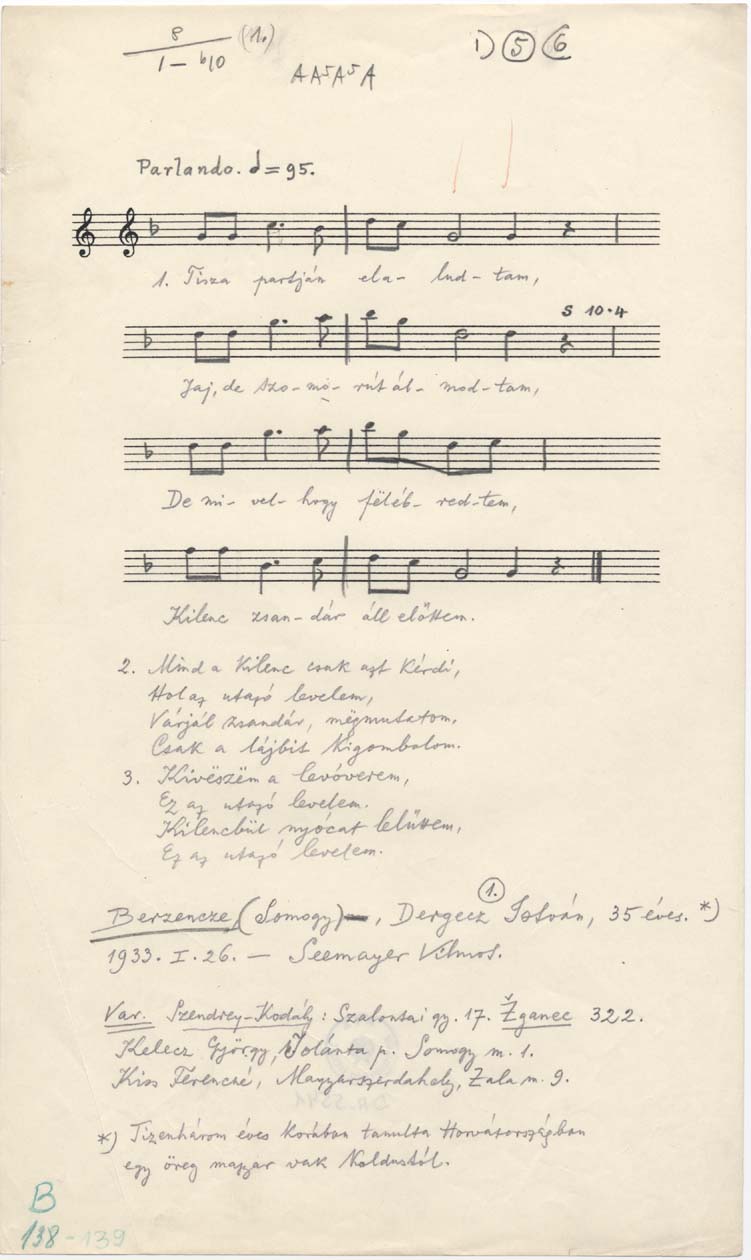 8 (1.)
1 – b10
A A⁵ A⁵ A
1) 5 6
Parlando. = 95.
1. Tisza partján ela- lud- tam,
S 10.4
Jaj, de szo- mo- rút ál- mod- tam,
De mi- vel- hogy fëléb- red- tem,
Kilenc zsan- dár áll előttem.
2. Mind a kilenc csak azt kérdi,
Hol az utazó levelem,
Várjál zsandár, mëgmutatom,
Csak a lájbit kigombolom.
3. Kivëszëm a levóverem,
Ez az utazó levelem.
Kilencbül nyócat lelüttem,
Ez az utazó levelem.
1.
Berzencze, (Somogy), Dergecz István, 35 éves. *)
1933. I. 26. – Seemayer Vilmos.
Var. Szendrey-Kodály: Szalontai gy. 17. Žganec 322.
Kelecz György, Jolánta p. Somogy m. 1.
Kiss Ferencné, Magyarszerdahely, Zala m. 9.
*) Tizenhárom éves korában tanulta Horvátországban
egy öreg magyar vak koldustól.
B
138-139